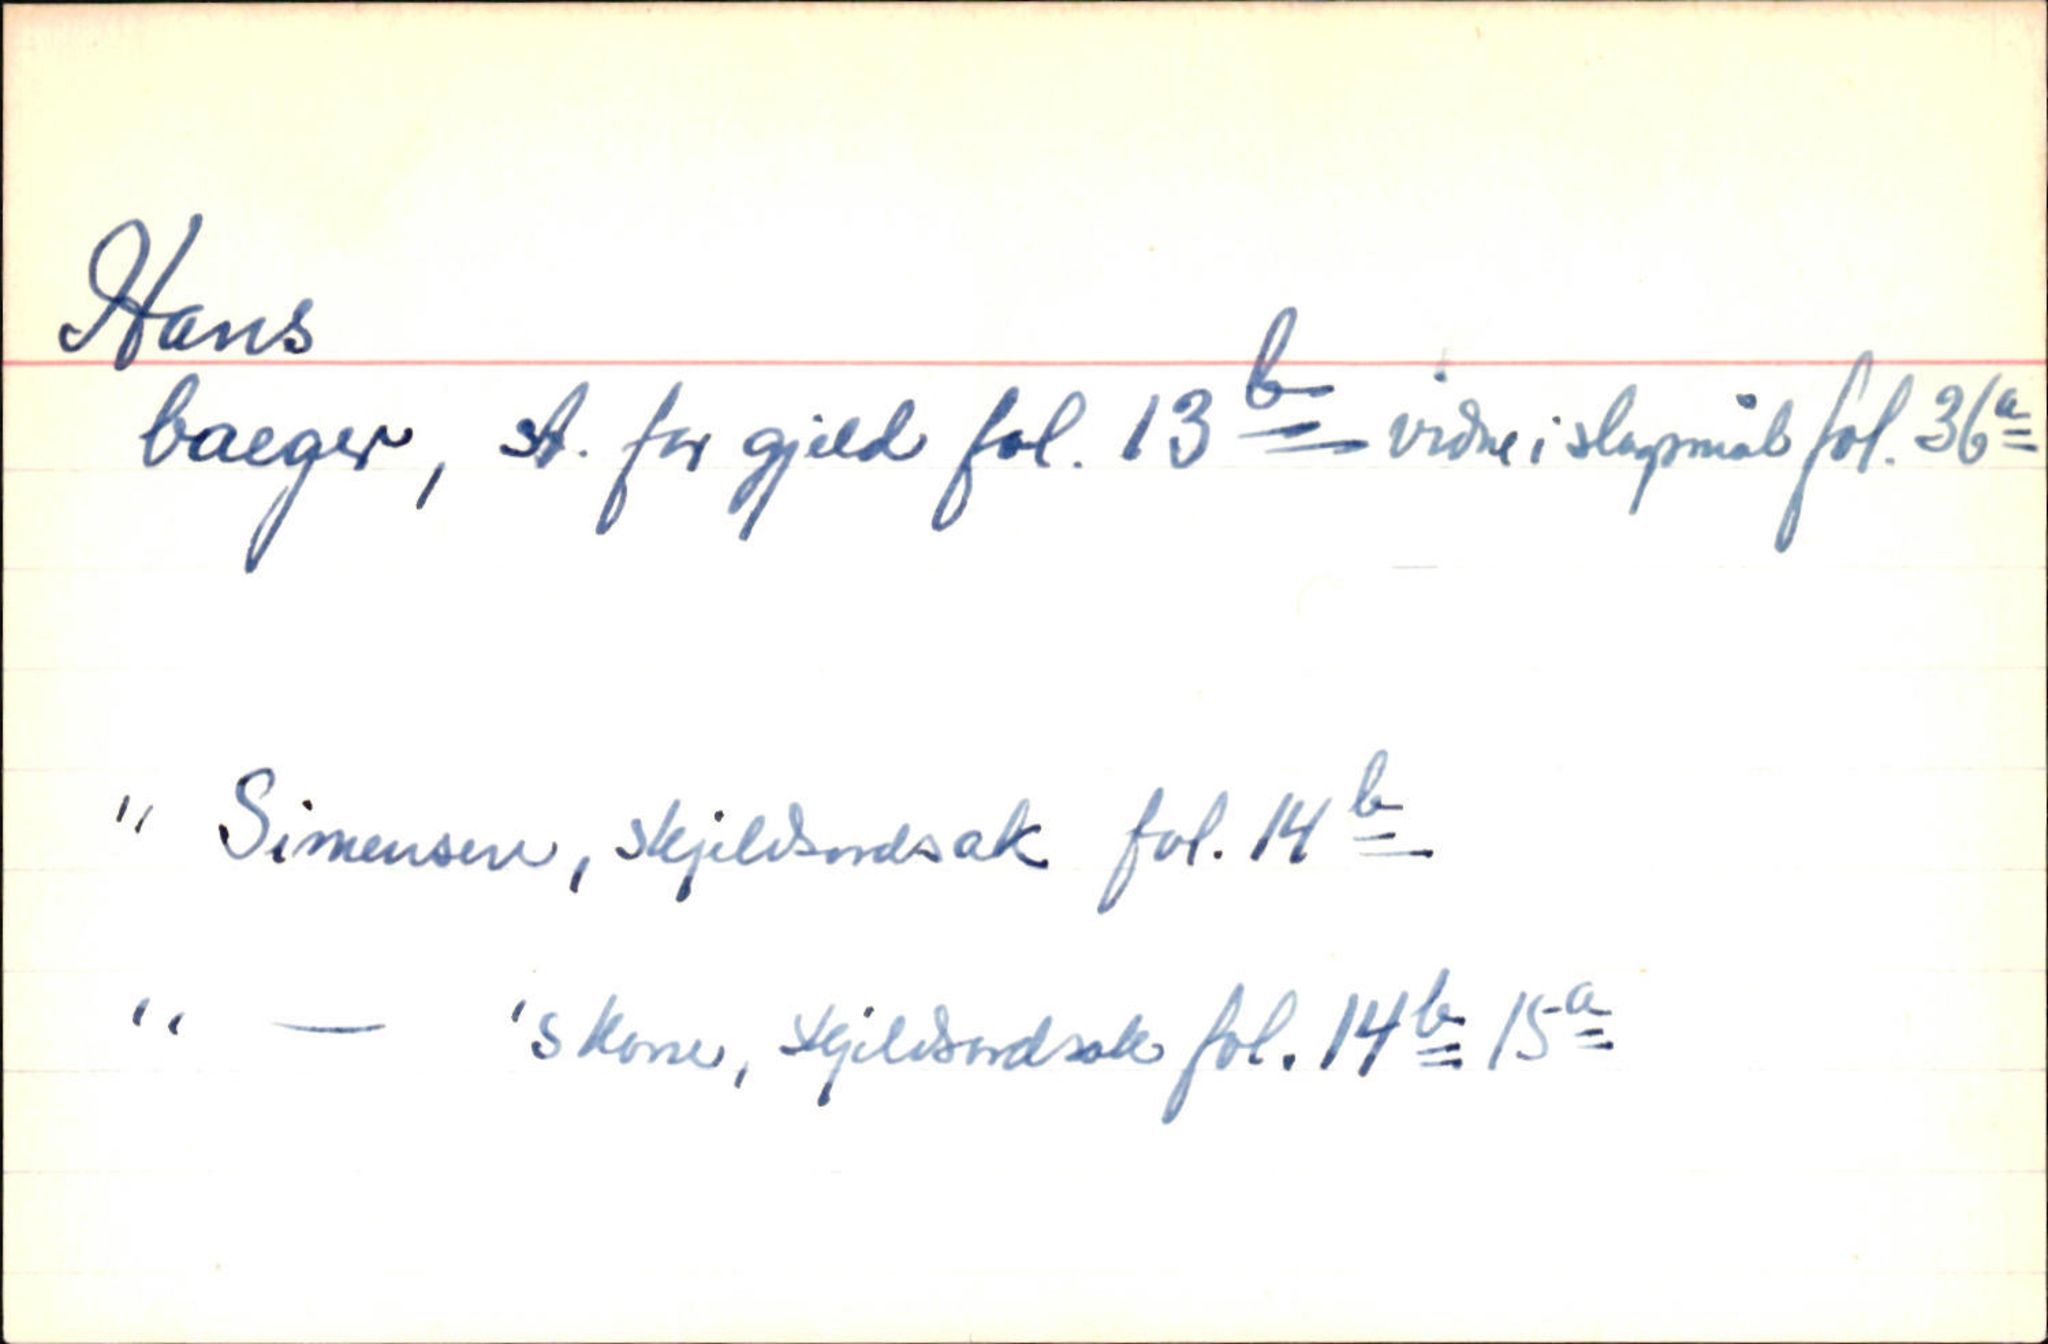 Hans
baeger, st. for gjeld fol. 13b vidne i slagsmål fol. 36a
" Simensen, skjeldsordsak fol. 14b
" — 's kone, skjeldsordsak fol. 14b 15a